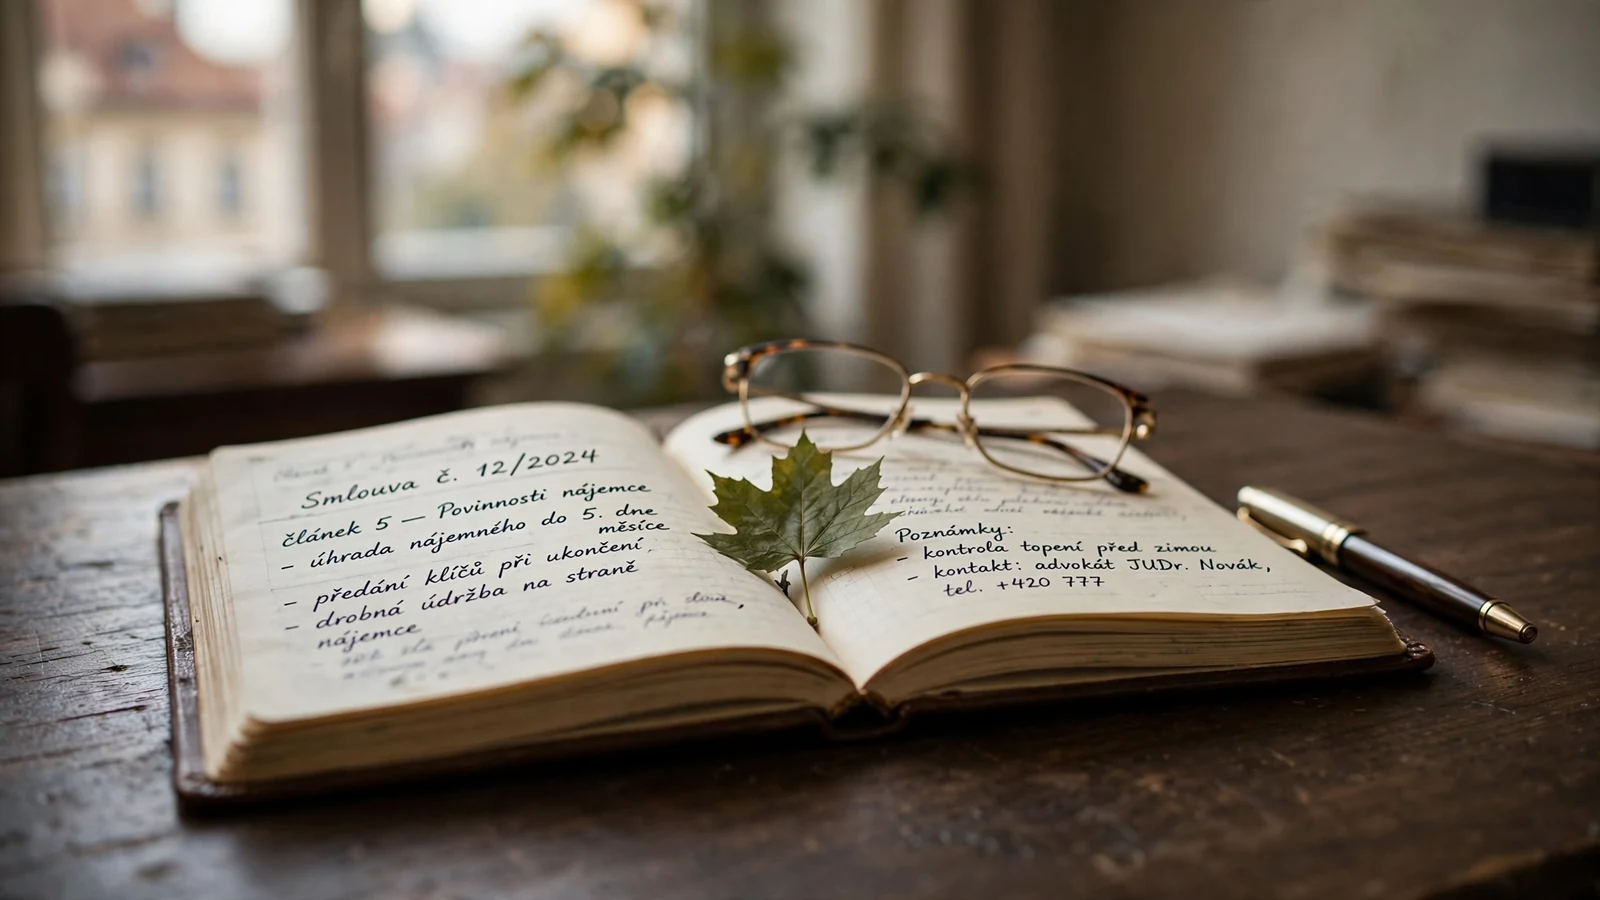 Smlouva č. 12/2024
článek 5 — Povinnosti nájemce
- úhrada nájemného do 5. dne
měsíce
- předání klíčů při ukončení
- drobná údržba na straně
nájemce
Poznámky:
- kontrola topení před zimou
- kontakt: advokát JUDr. Novák,
tel. +420 777